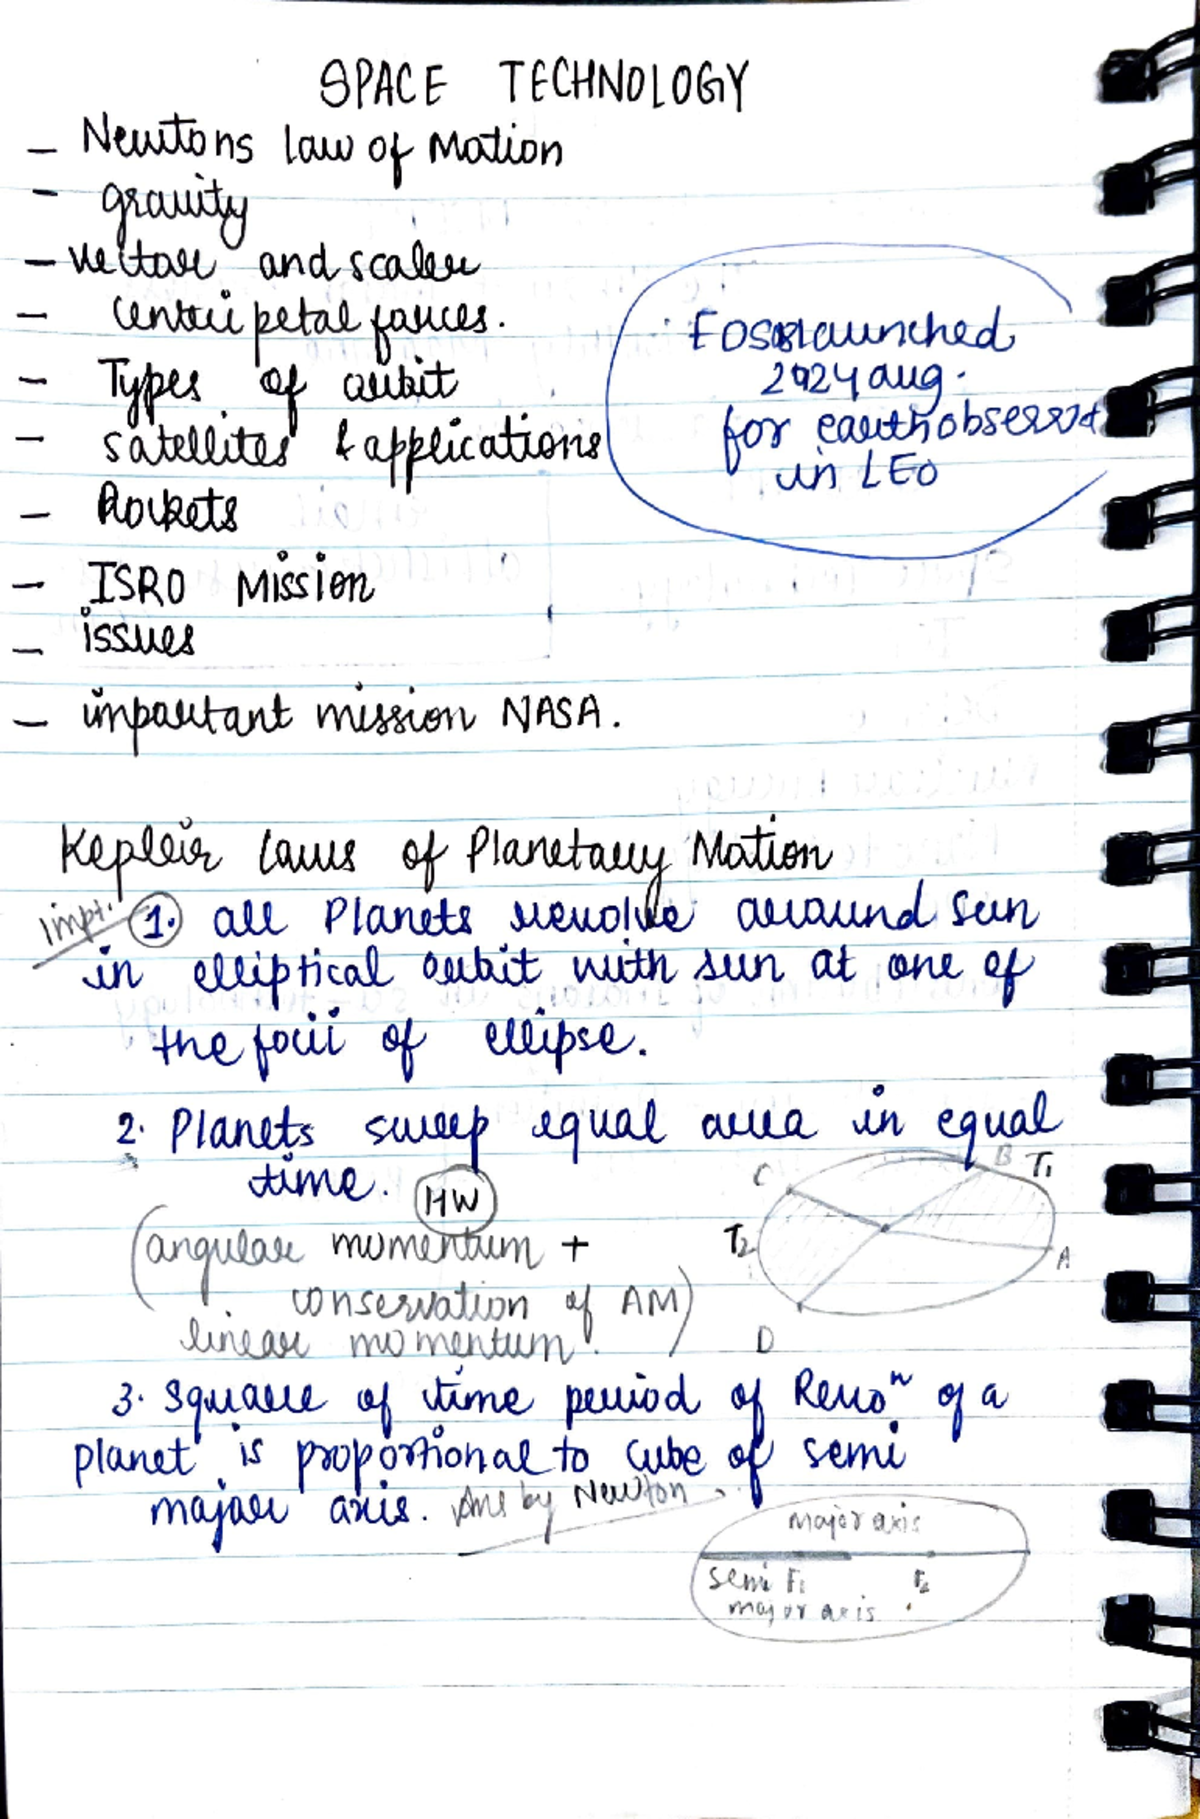 SPACE TECHNOLOGY
- Newtons law of Motion
- gravity
- vector and scaler
- Centripetal forces.
- Types of orbit
- satellites & applications
- Rockets
- ISRO Mission
- issues
- important mission NASA.
EOS08 launched
2024 aug.
for earth observat
in LEO
Kepleir laws of Planetary Motion
Impt. 1. all Planets revolve around sun
in elliptical orbit with sun at one of
the focii of ellipse.
2. Planets sweep equal area in equal
time. HW
(angular momentum +
conservation of AM)
linear momentum.
C B T1
T2 A
D
3. Square of time period of Revoⁿ of a
planet is proportional to cube of semi
major axis. Ans by Newton
major axis
semi F1 F2
major axis